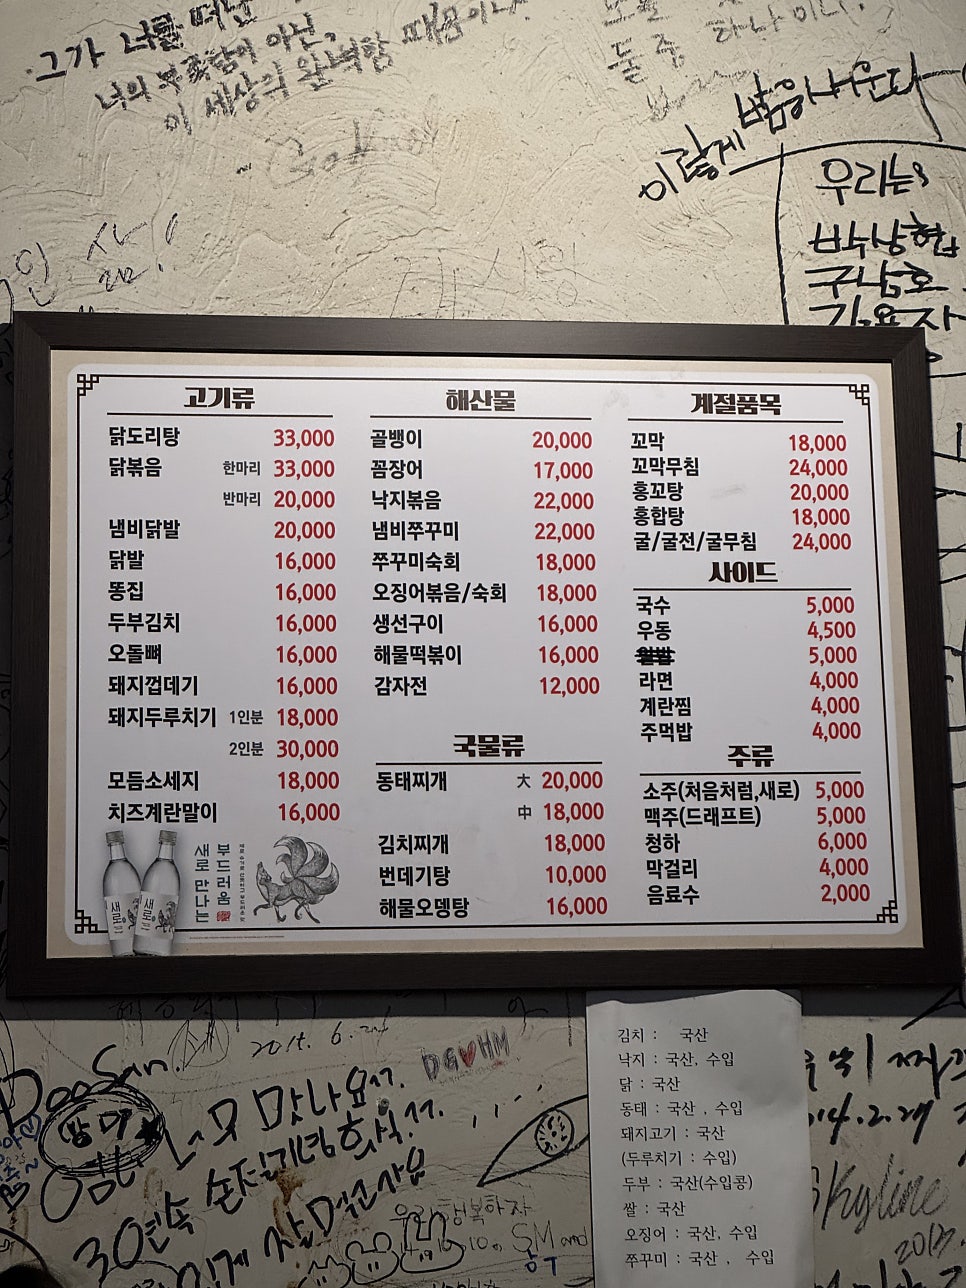 그가 너를 떠난
너의 부족함이 아닌,
이 세상의 완벽함 때문이다.
둘 중 하나
이렇게 밤을 새운다
우리는
박수상협
구남호
인 삶!
고기류
닭도리탕 33,000
닭볶음 한마리 33,000
반마리 20,000
냄비닭발 20,000
닭발 16,000
똥집 16,000
두부김치 16,000
오돌뼈 16,000
돼지껍데기 16,000
돼지두루치기 1인분 18,000
2인분 30,000
모듬소세지 18,000
치즈계란말이 16,000
부드러움
새로 만나는
새로
해산물
골뱅이 20,000
꼼장어 17,000
낙지볶음 22,000
냄비쭈꾸미 22,000
쭈꾸미숙회 18,000
오징어볶음/숙회 18,000
생선구이 16,000
해물떡볶이 16,000
감자전 12,000
국물류
동태찌개 大 20,000
中 18,000
김치찌개 18,000
번데기탕 10,000
해물오뎅탕 16,000
계절품목
꼬막 18,000
꼬막무침 24,000
홍꼬탕 20,000
홍합탕 18,000
굴/굴전/굴무침 24,000
사이드
국수 5,000
우동 4,500
5,000
라면 4,000
계란찜 4,000
주먹밥 4,000
주류
소주(처음처럼,새로) 5,000
맥주(드래프트) 5,000
청하 6,000
막걸리 4,000
음료수 2,000
김치 : 국산
낙지 : 국산, 수입
닭 : 국산
동태 : 국산 , 수입
돼지고기 : 국산
(두루치기 : 수입)
두부 : 국산(수입콩)
쌀 : 국산
오징어 : 국산, 수입
쭈꾸미 : 국산 , 수입
2015. 6.
DG♥HM
DooSan.
너무 맛나요
30연속
우리 행복하자
SM and
Skyline
2013.